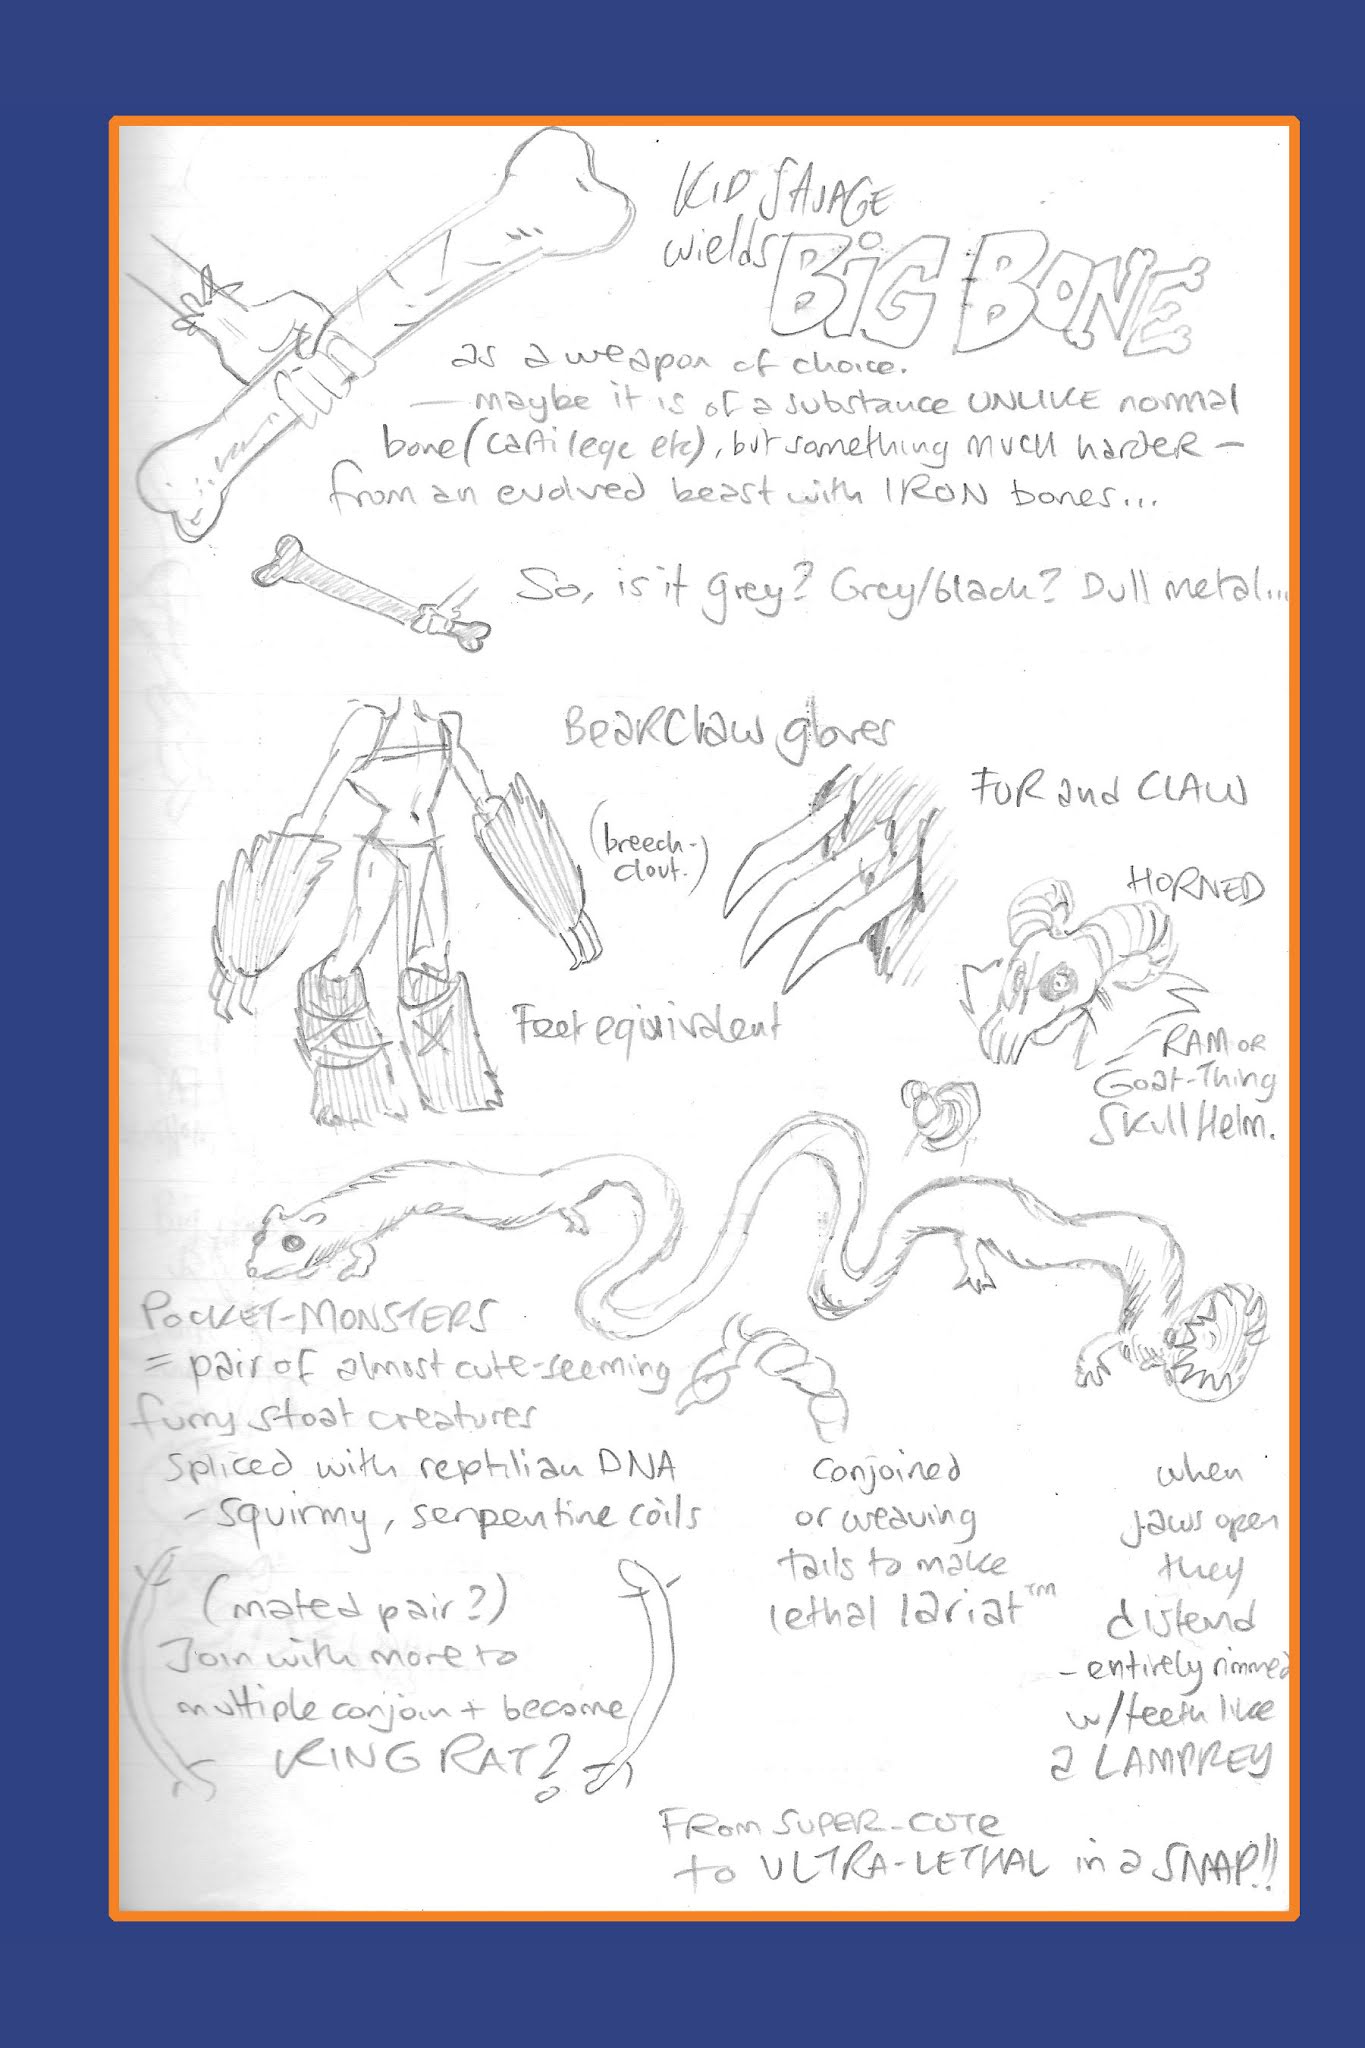 KID SAVAGE
wields BIG BONE
as a weapon of choice.
— maybe it is of a substance UNLIKE normal
bone (cartilege etc), but something much harder —
from an evolved beast with IRON bones...
So, is it grey? Grey/black? Dull metal...
BearClaw gloves
FUR and CLAW
(breech-
clout.)
HORNED
Feet equivalent
RAM OR
Goat-Thing
Skull Helm.
POCKET-MONSTERS
= pair of almost cute-seeming
furry stoat creatures
spliced with reptilian DNA
- squirmy, serpentine coils
(mated pair?)
Join with more to
multiple conjoin + become
KING RAT?
conjoined
or weaving
tails to make
lethal lariat™
when
jaws open
they
distend
- entirely rimmed
w/teeth like
a LAMPREY
FROM SUPER-CUTE
to ULTRA-LETHAL in a SNAP!!